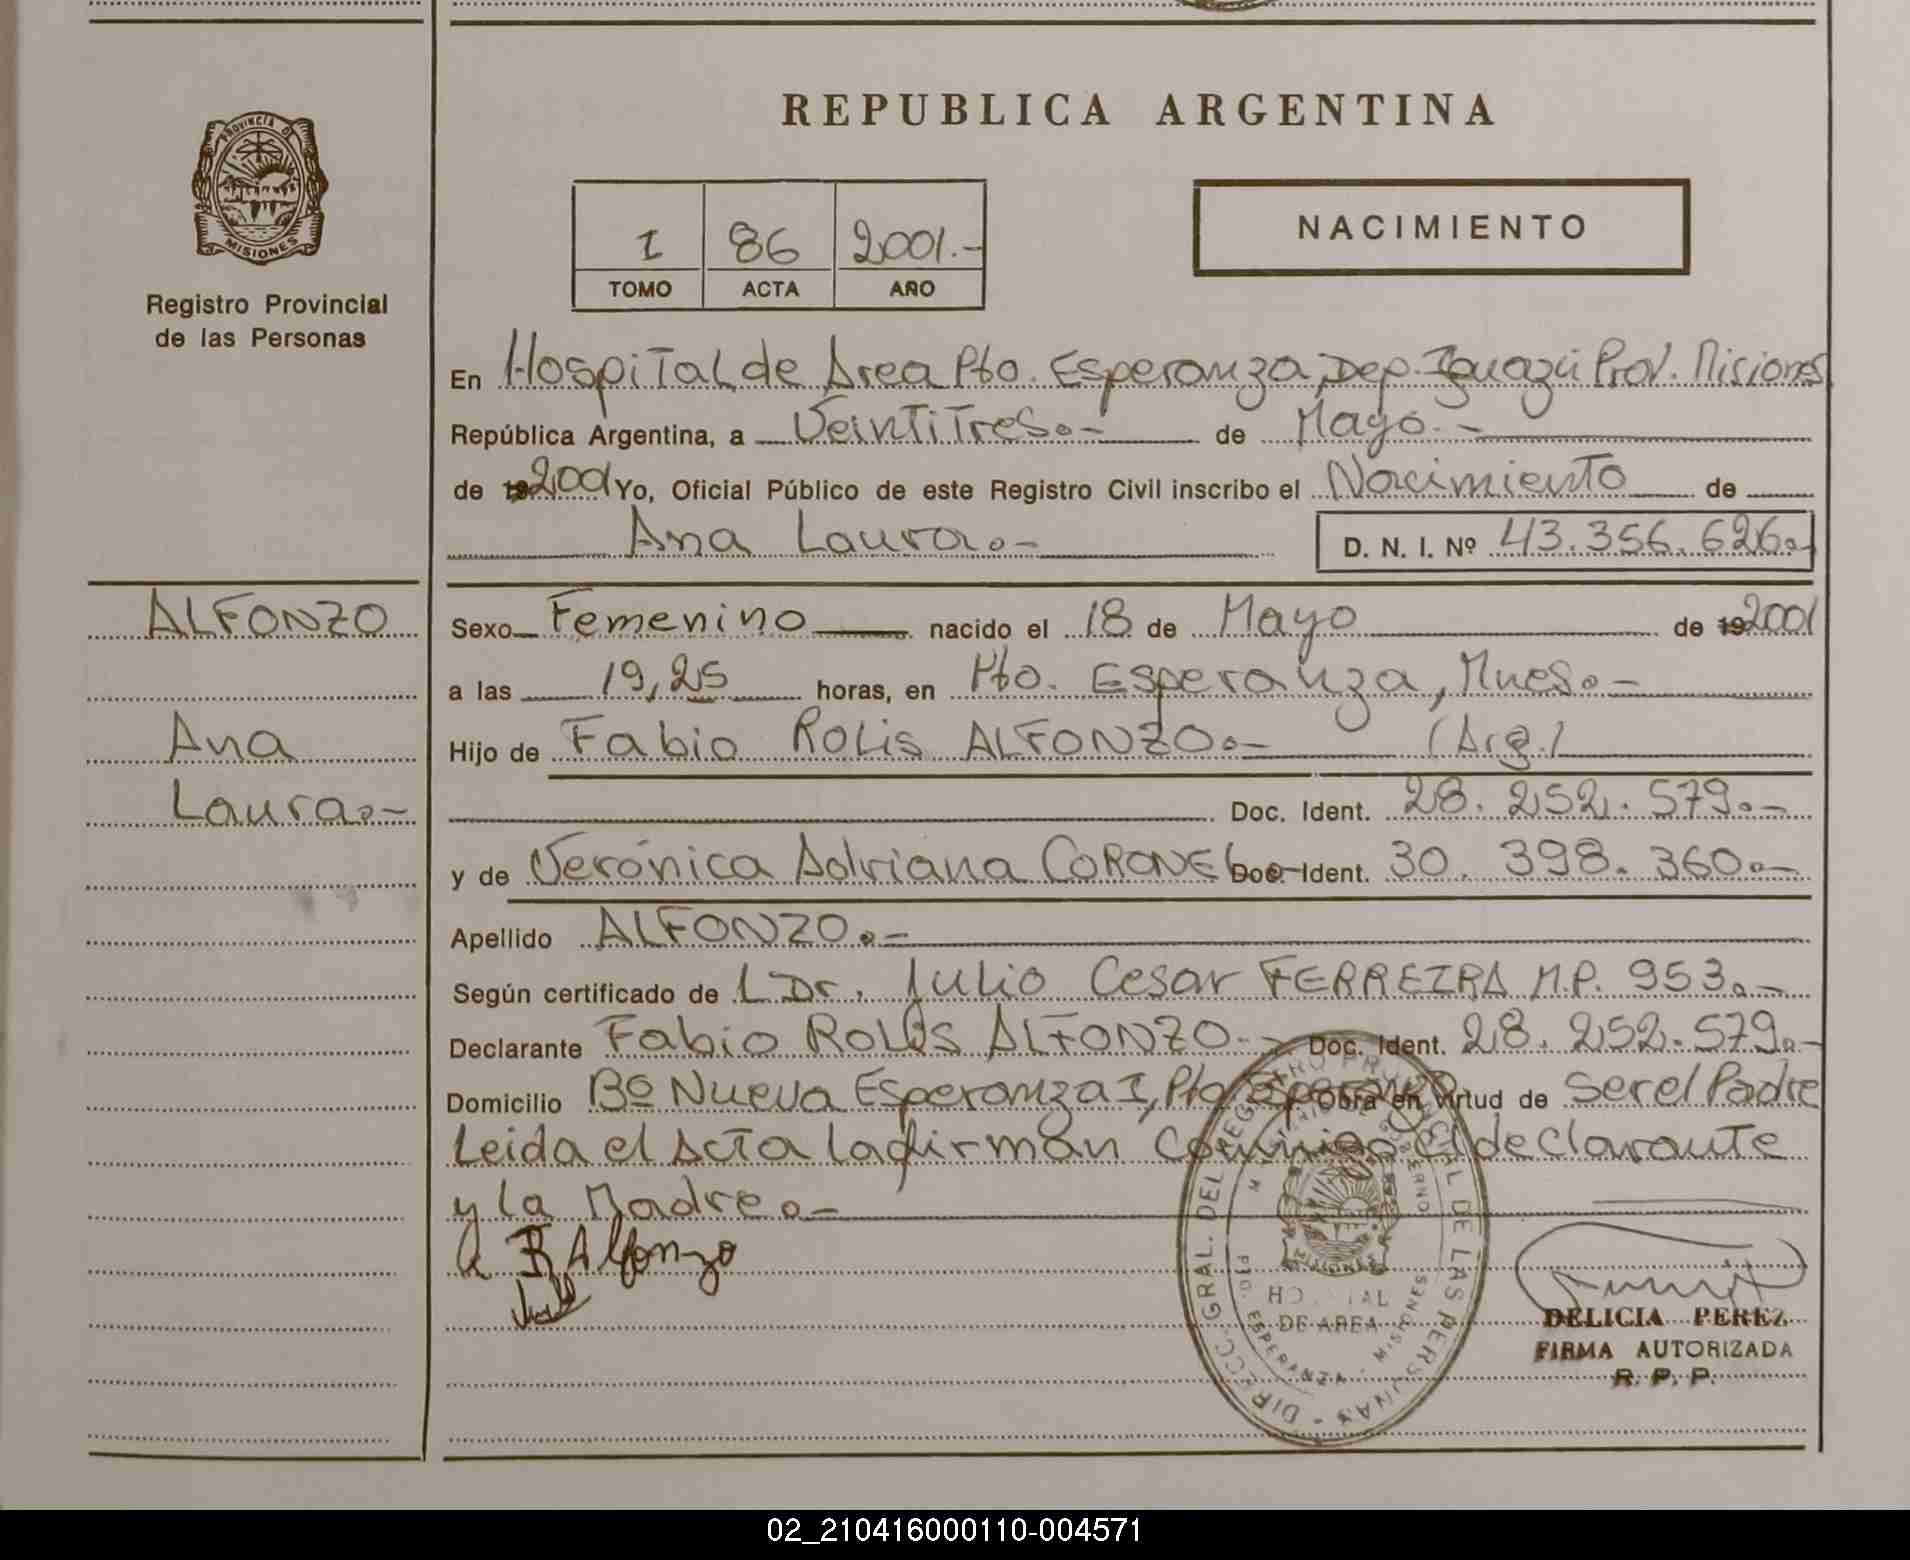 REPUBLICA ARGENTINA
PROVINCIA DE
MISIONES
Registro Provincial
de las Personas
I 86 2001.-
TOMO ACTA AÑO
NACIMIENTO
En Hospital de Area Pto. Esperanza, Dep. Iguazú Prov. Misiones
República Argentina, a Veintitres.- de Mayo.-
de 19 2001 Yo, Oficial Público de este Registro Civil inscribo el Nacimiento de
Ana Laura.- D. N. I. Nº 43.356.626.-
ALFONZO
Ana
Laura.-
Sexo Femenino nacido el 18 de Mayo de 19 2001
a las 19,25 horas, en Pto. Esperanza, Mnes.-
Hijo de Fabio Rolis ALFONZO.- (Arg.)
Doc. Ident. 28.252.579.-
y de Verónica Adriana CORONEL.- Doc. Ident. 30.398.360.-
Apellido ALFONZO.-
Según certificado de L Dr. Julio Cesar FERREIRA M.P. 953.-
Declarante Fabio Rolis ALFONZO.- Doc. Ident. 28.252.579.-
Domicilio Bº Nueva Esperanza I, Pto Esperanza Obra en Virtud de Ser el Padre
Leida el Acta la firman Conmigo el declarante
y la Madre.-
R Alfonzo
DIRECC. GRAL. DEL REGISTRO PROVINCIAL DE LAS PERSONAS
MINISTERIO GOBIERNO
MISIONES
HOSPITAL
DE AREA
PTO. ESPERANZA - MISIONES
DELICIA PEREZ
FIRMA AUTORIZADA
R. P. P.
02_210416000110-004571